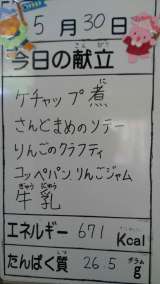 5月30日
今日の献立
ケチャップ煮
さんどまめのソテー
りんごのクラフティ
コッペパン りんごジャム
牛乳
エネルギー 671 Kcal
たんぱく質 26.5 g